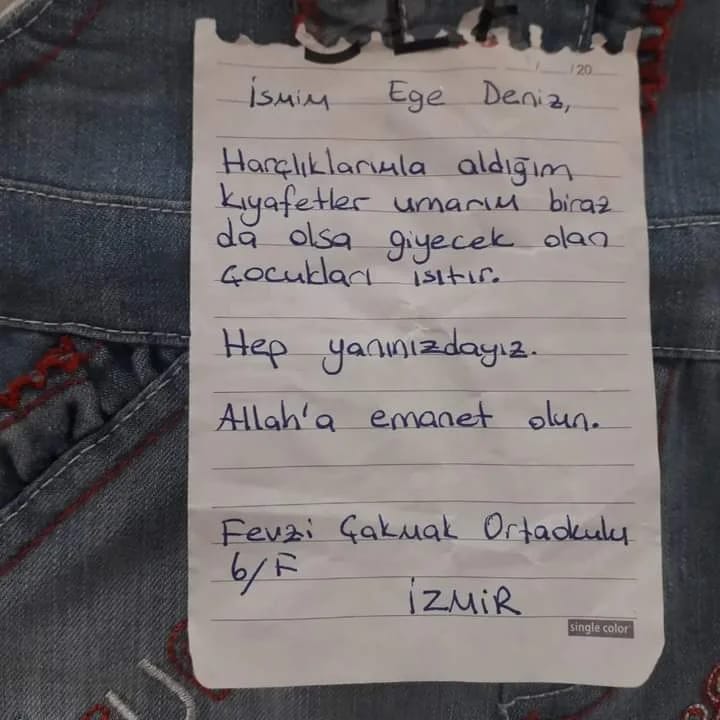 / /20
İsmim Ege Deniz,
Harçlıklarımla aldığım
kıyafetler umarım biraz
da olsa giyecek olan
çocukları ısıtır.
Hep yanınızdayız.
Allah'a emanet olun.
Fevzi Çakmak Ortaokulu
6/F
İZMİR
single color